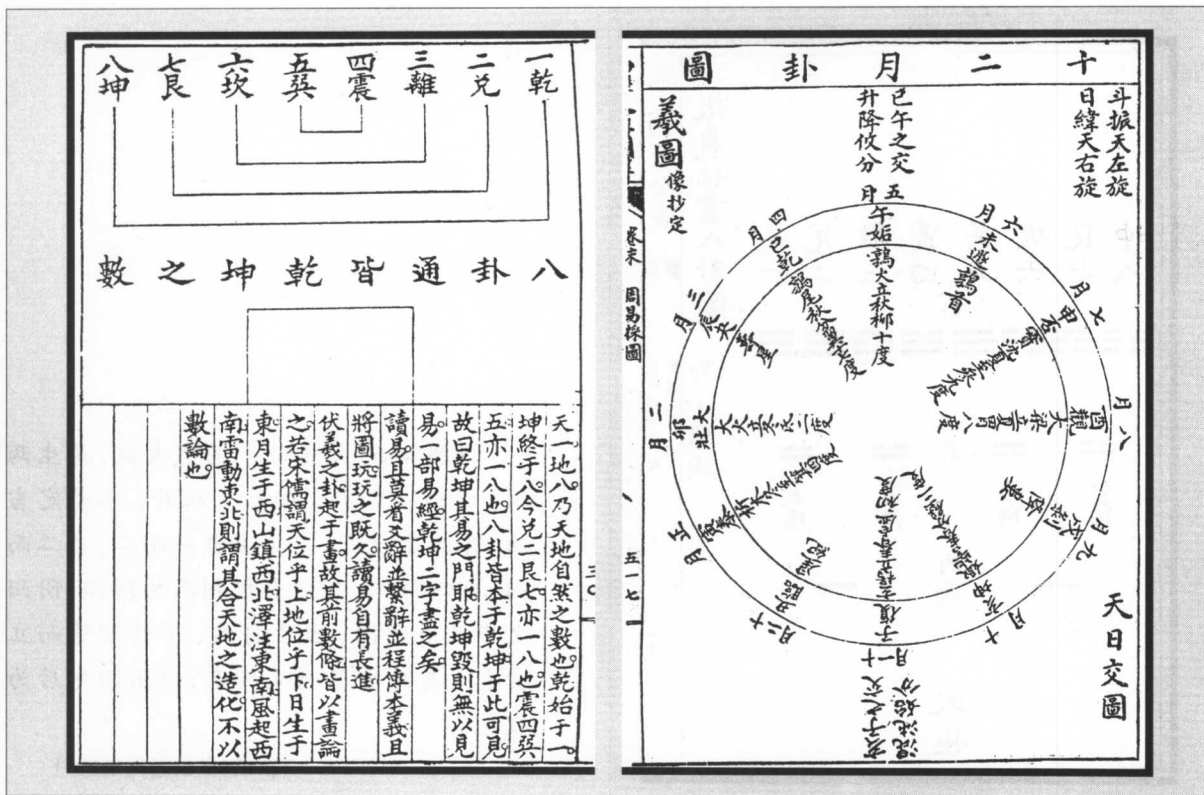 十二月卦圖
斗振天左旋
日緯天右旋
巳午之交
升降攸分
天日交圖
五月
午姤 鶉火立秋柳十度
六月
未遯 鶉首
七月
申否 實沈夏至參九度
八月
酉觀 大梁立夏昴八度
九月
戌剝 降婁
十月
亥坤
十一月
子復 立春虛初度
十二月
丑臨 星紀
正月
寅泰 析木
二月
卯大壯 大火立冬氐二度
三月
辰夬 壽星
四月
巳乾 鶉尾秋分翼
亥子之交
混沌始分
羲圖 像抄定
卷末 周易採圖
五一七
一乾 二兌 三離 四震 五巽 六坎 七艮 八坤
八卦通皆乾坤之數
天一地八乃天地自然之數也乾始于一
坤終于八今兌二艮七亦一八也震四巽
五亦一八也八卦皆本于乾坤于此可見
故曰乾坤其易之門耶乾坤毀則無以見
易一部易經乾坤二字盡之矣
讀易且莫看文辭並繫辭並程傳本義且
將圖玩玩之既久讀易自有長進
伏羲之卦起于畫故其前數條皆以畫論
之若宋儒謂天位乎上地位乎下日生于
東月生于西山鎮西北澤注東南風起西
南雷動東北則謂其合天地之造化不以
數論也